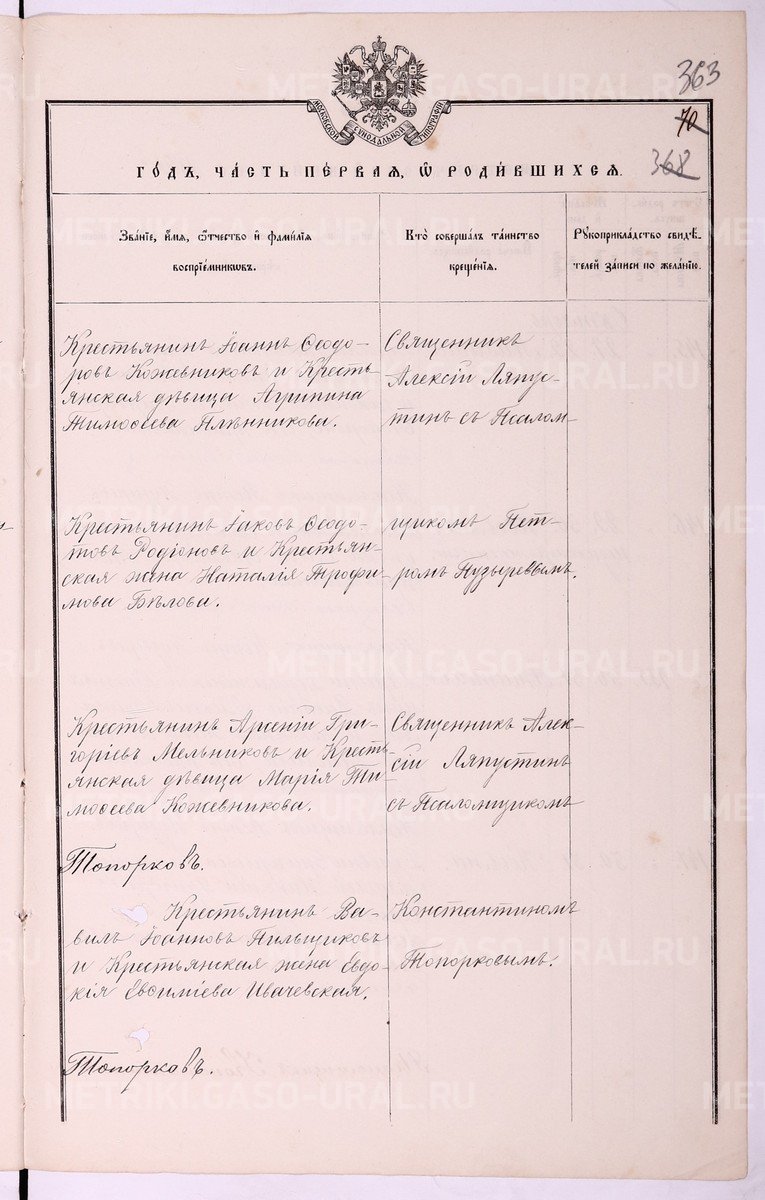 363
70
368
МОСКОВСКОЙ СѴНОДАЛЬНОЙ ТИПОГРАФІИ
ГО́ДЪ, ЧА́СТЬ ПЕ́РВАЯ, Ѡ҆ РОДИ́ВШИХСЯ.
Зва́нїе, и҆́мя, ѻ҆́тчество и҆ фами́лїя воспрїе́мникѡвъ.
Кто̀ соверша́лъ та́инство креще́нїя.
Рꙋкоприкла́дство свидѣ́телей за́писи по жела́нїю.
Крестьянинъ Іоаннъ Ѳеодо-
ровъ Кожевниковъ и Кресть
янская дѣвица Агрипина
Тимоѳеева Плѣнникова.
Священникъ
Алексій Ляпус-
тинъ съ Псалом-
Крестьянинъ Іаковъ Ѳеодо-
товъ Родіоновъ и Крестьян-
ская жена Наталія Трофи-
мова Бѣлова.
щикомъ Пет-
ромъ Пузыревымъ.
Крестьянинъ Арсеній Гри-
горіевъ Мельниковъ и Кресть-
янская дѣвица Марія Ти-
моѳеева Кожевникова.
Топорковъ.
Священникъ Алек-
сій Ляпустинъ
съ Псаломщикомъ
Крестьянинъ Ва-
вилъ Іоанновъ Пильщиковъ
и Крестьянская жена Евдо-
кія Евѳиміева Ивачевская.
Топорковъ.
Константиномъ
Топорковымъ.
METRIKI.GASO-URAL.RU